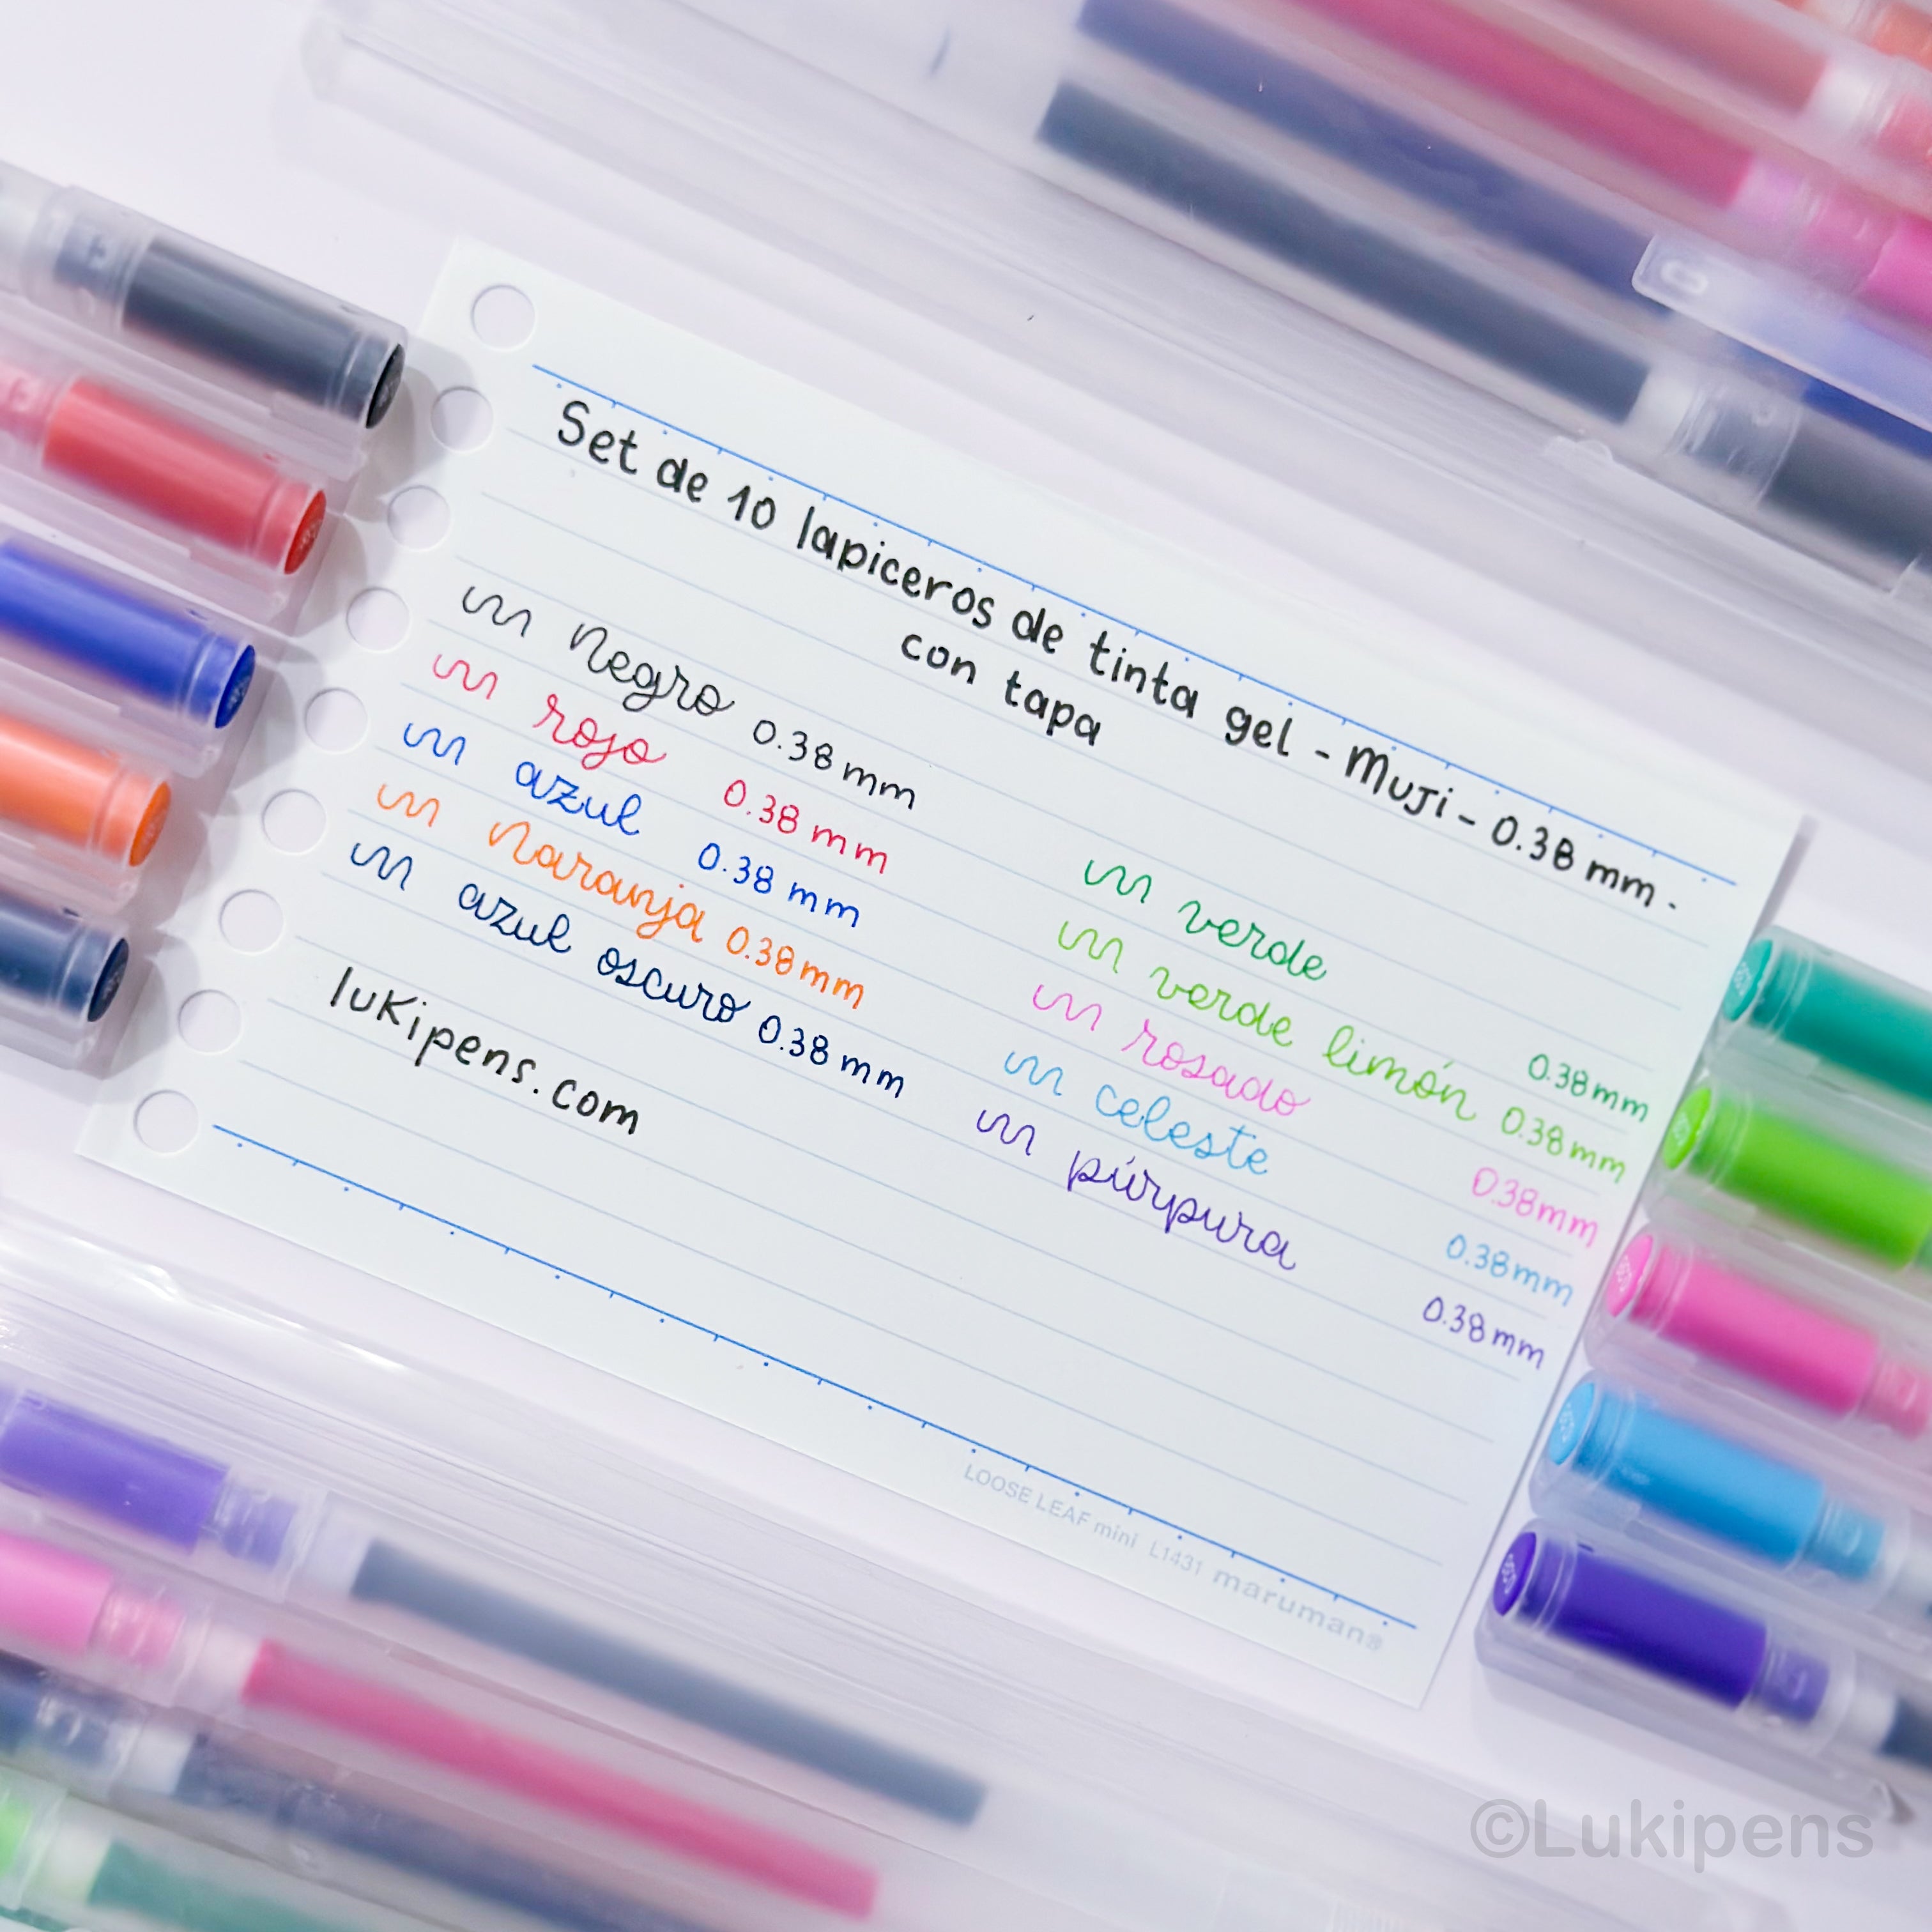 Set de 10 lapiceros de tinta gel - MUJI - 0.38 mm -
con tapa
Negro 0.38 mm
rojo 0.38 mm
azul 0.38 mm
Naranja 0.38 mm
azul oscuro 0.38 mm
verde 0.38 mm
verde limón 0.38 mm
rosado 0.38 mm
celeste 0.38 mm
púrpura 0.38 mm
lukipens.com
LOOSE LEAF mini L1431 maruman®
©Lukipens